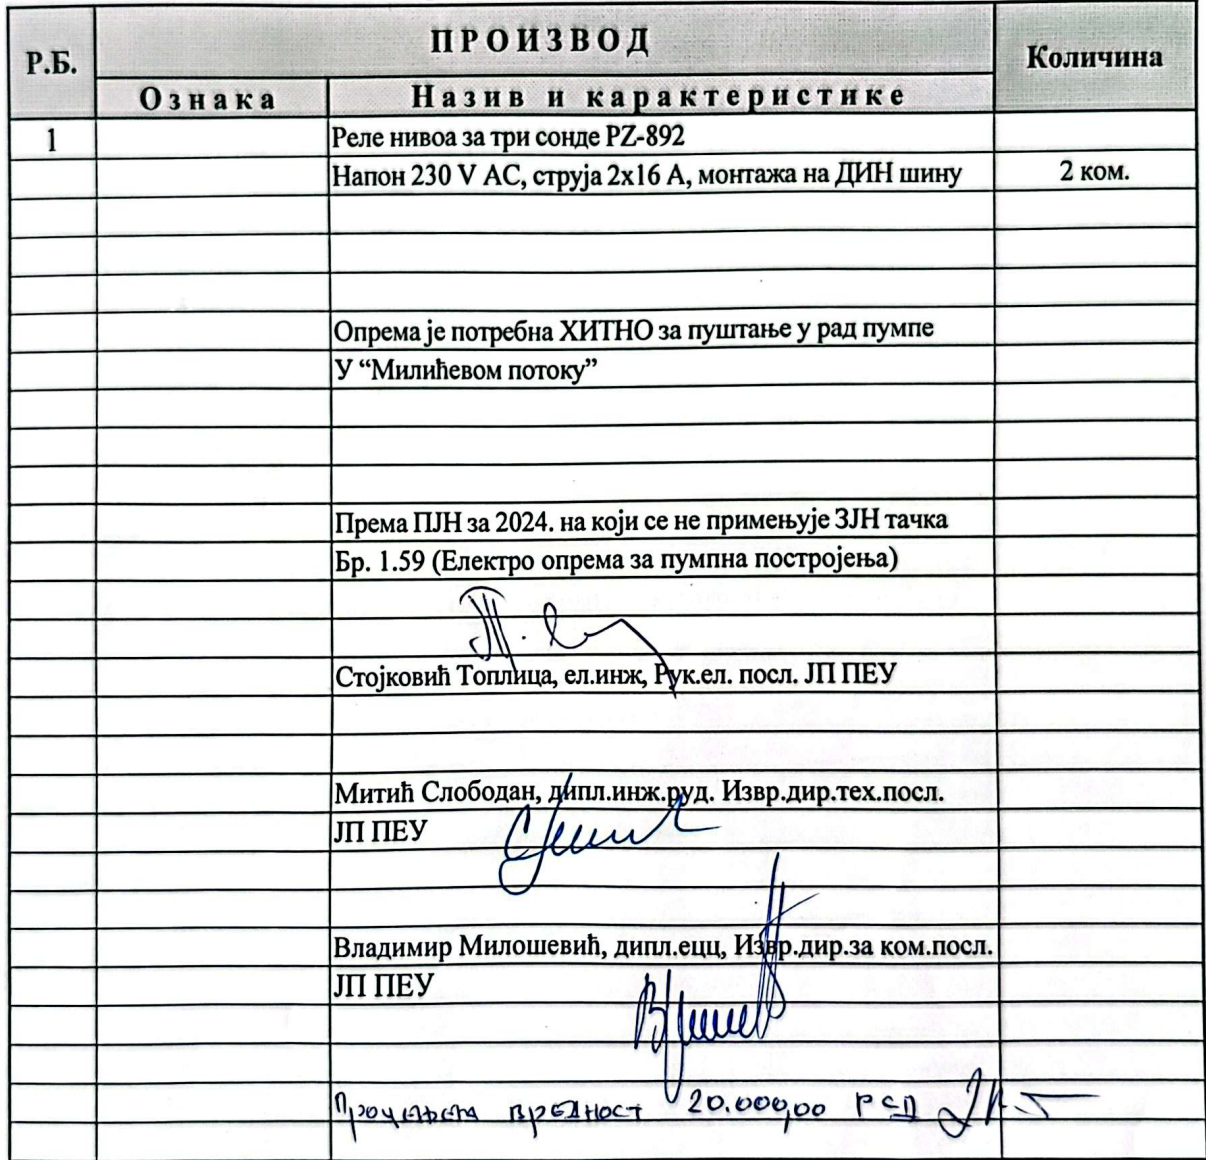 Р.Б.
ПРОИЗВОД
Количина
Ознака
Назив и карактеристике
1
Реле нивоа за три сонде PZ-892
Напон 230 V AC, струја 2x16 А, монтажа на ДИН шину
2 ком.
Опрема је потребна ХИТНО за пуштање у рад пумпе
У “Милићевом потоку”
Према ПЈН за 2024. на који се не примењује ЗЈН тачка
Бр. 1.59 (Електро опрема за пумпна постројења)
Стојковић Топлица, ел.инж, Рук.ел. посл. ЈП ПЕУ
Митић Слободан, дипл.инж.руд. Извр.дир.тех.посл.
ЈП ПЕУ
Владимир Милошевић, дипл.ецц, Извр.дир.за ком.посл.
ЈП ПЕУ
Процењена вредност 20.000,00 РСД